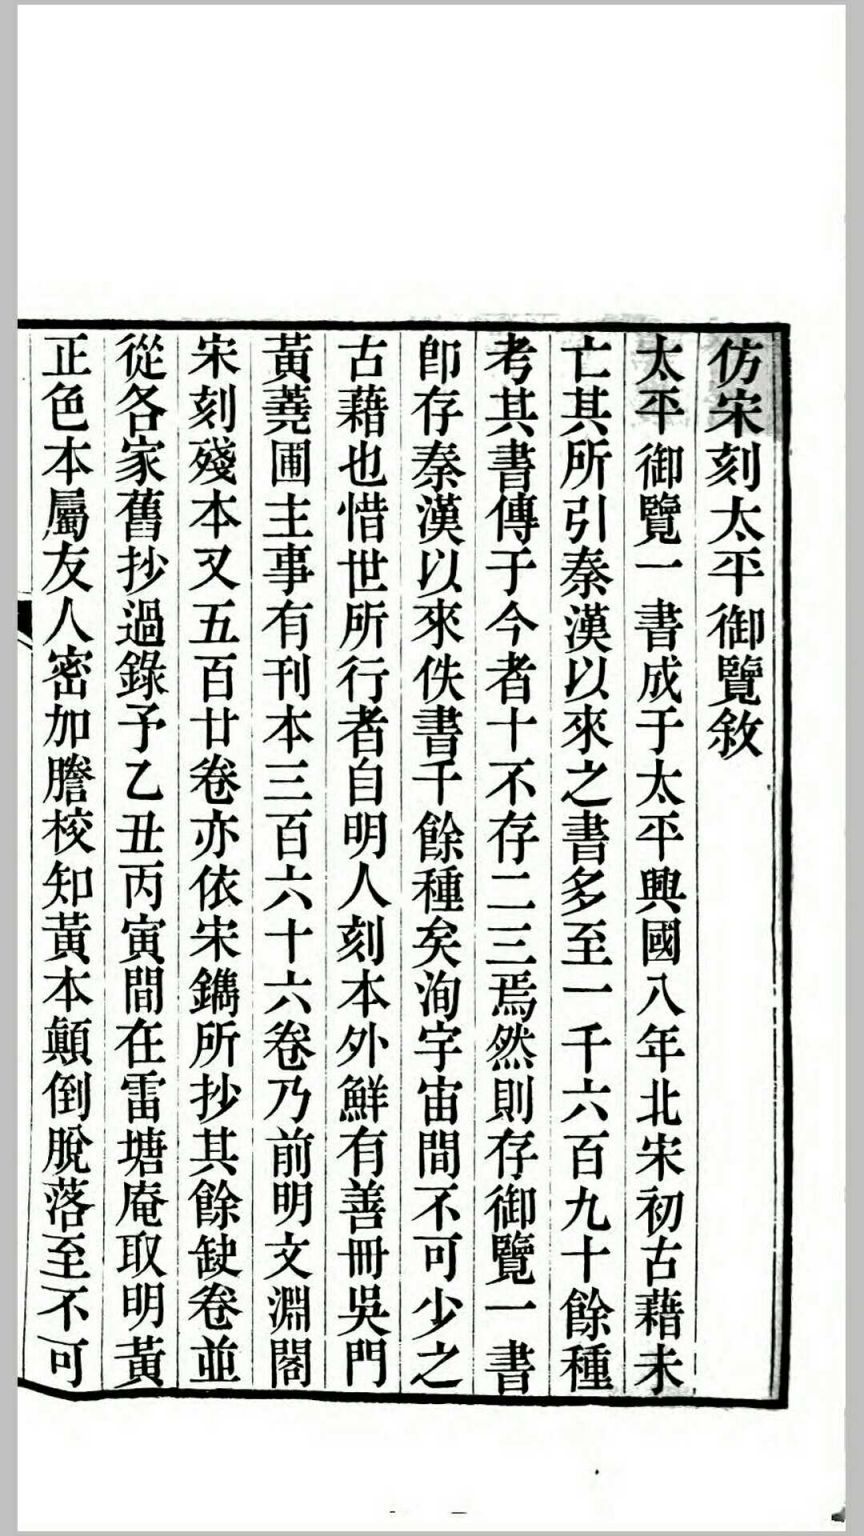 仿宋刻太平御覽敘
太平御覽一書成于太平興國八年北宋初古藉未
亡其所引秦漢以來之書多至一千六百九十餘種
考其書傳于今者十不存二三焉然則存御覽一書
卽存秦漢以來佚書千餘種矣洵宇宙間不可少之
古藉也惜世所行者自明人刻本外鮮有善冊吳門
黃蕘圃主事有刊本三百六十六卷乃前明文淵閣
宋刻殘本又五百廿卷亦依宋鐫所抄其餘缺卷並
從各家舊抄過錄予乙丑丙寅間在雷塘庵取明黃
正色本屬友人密加謄校知黃本顛倒脫落至不可